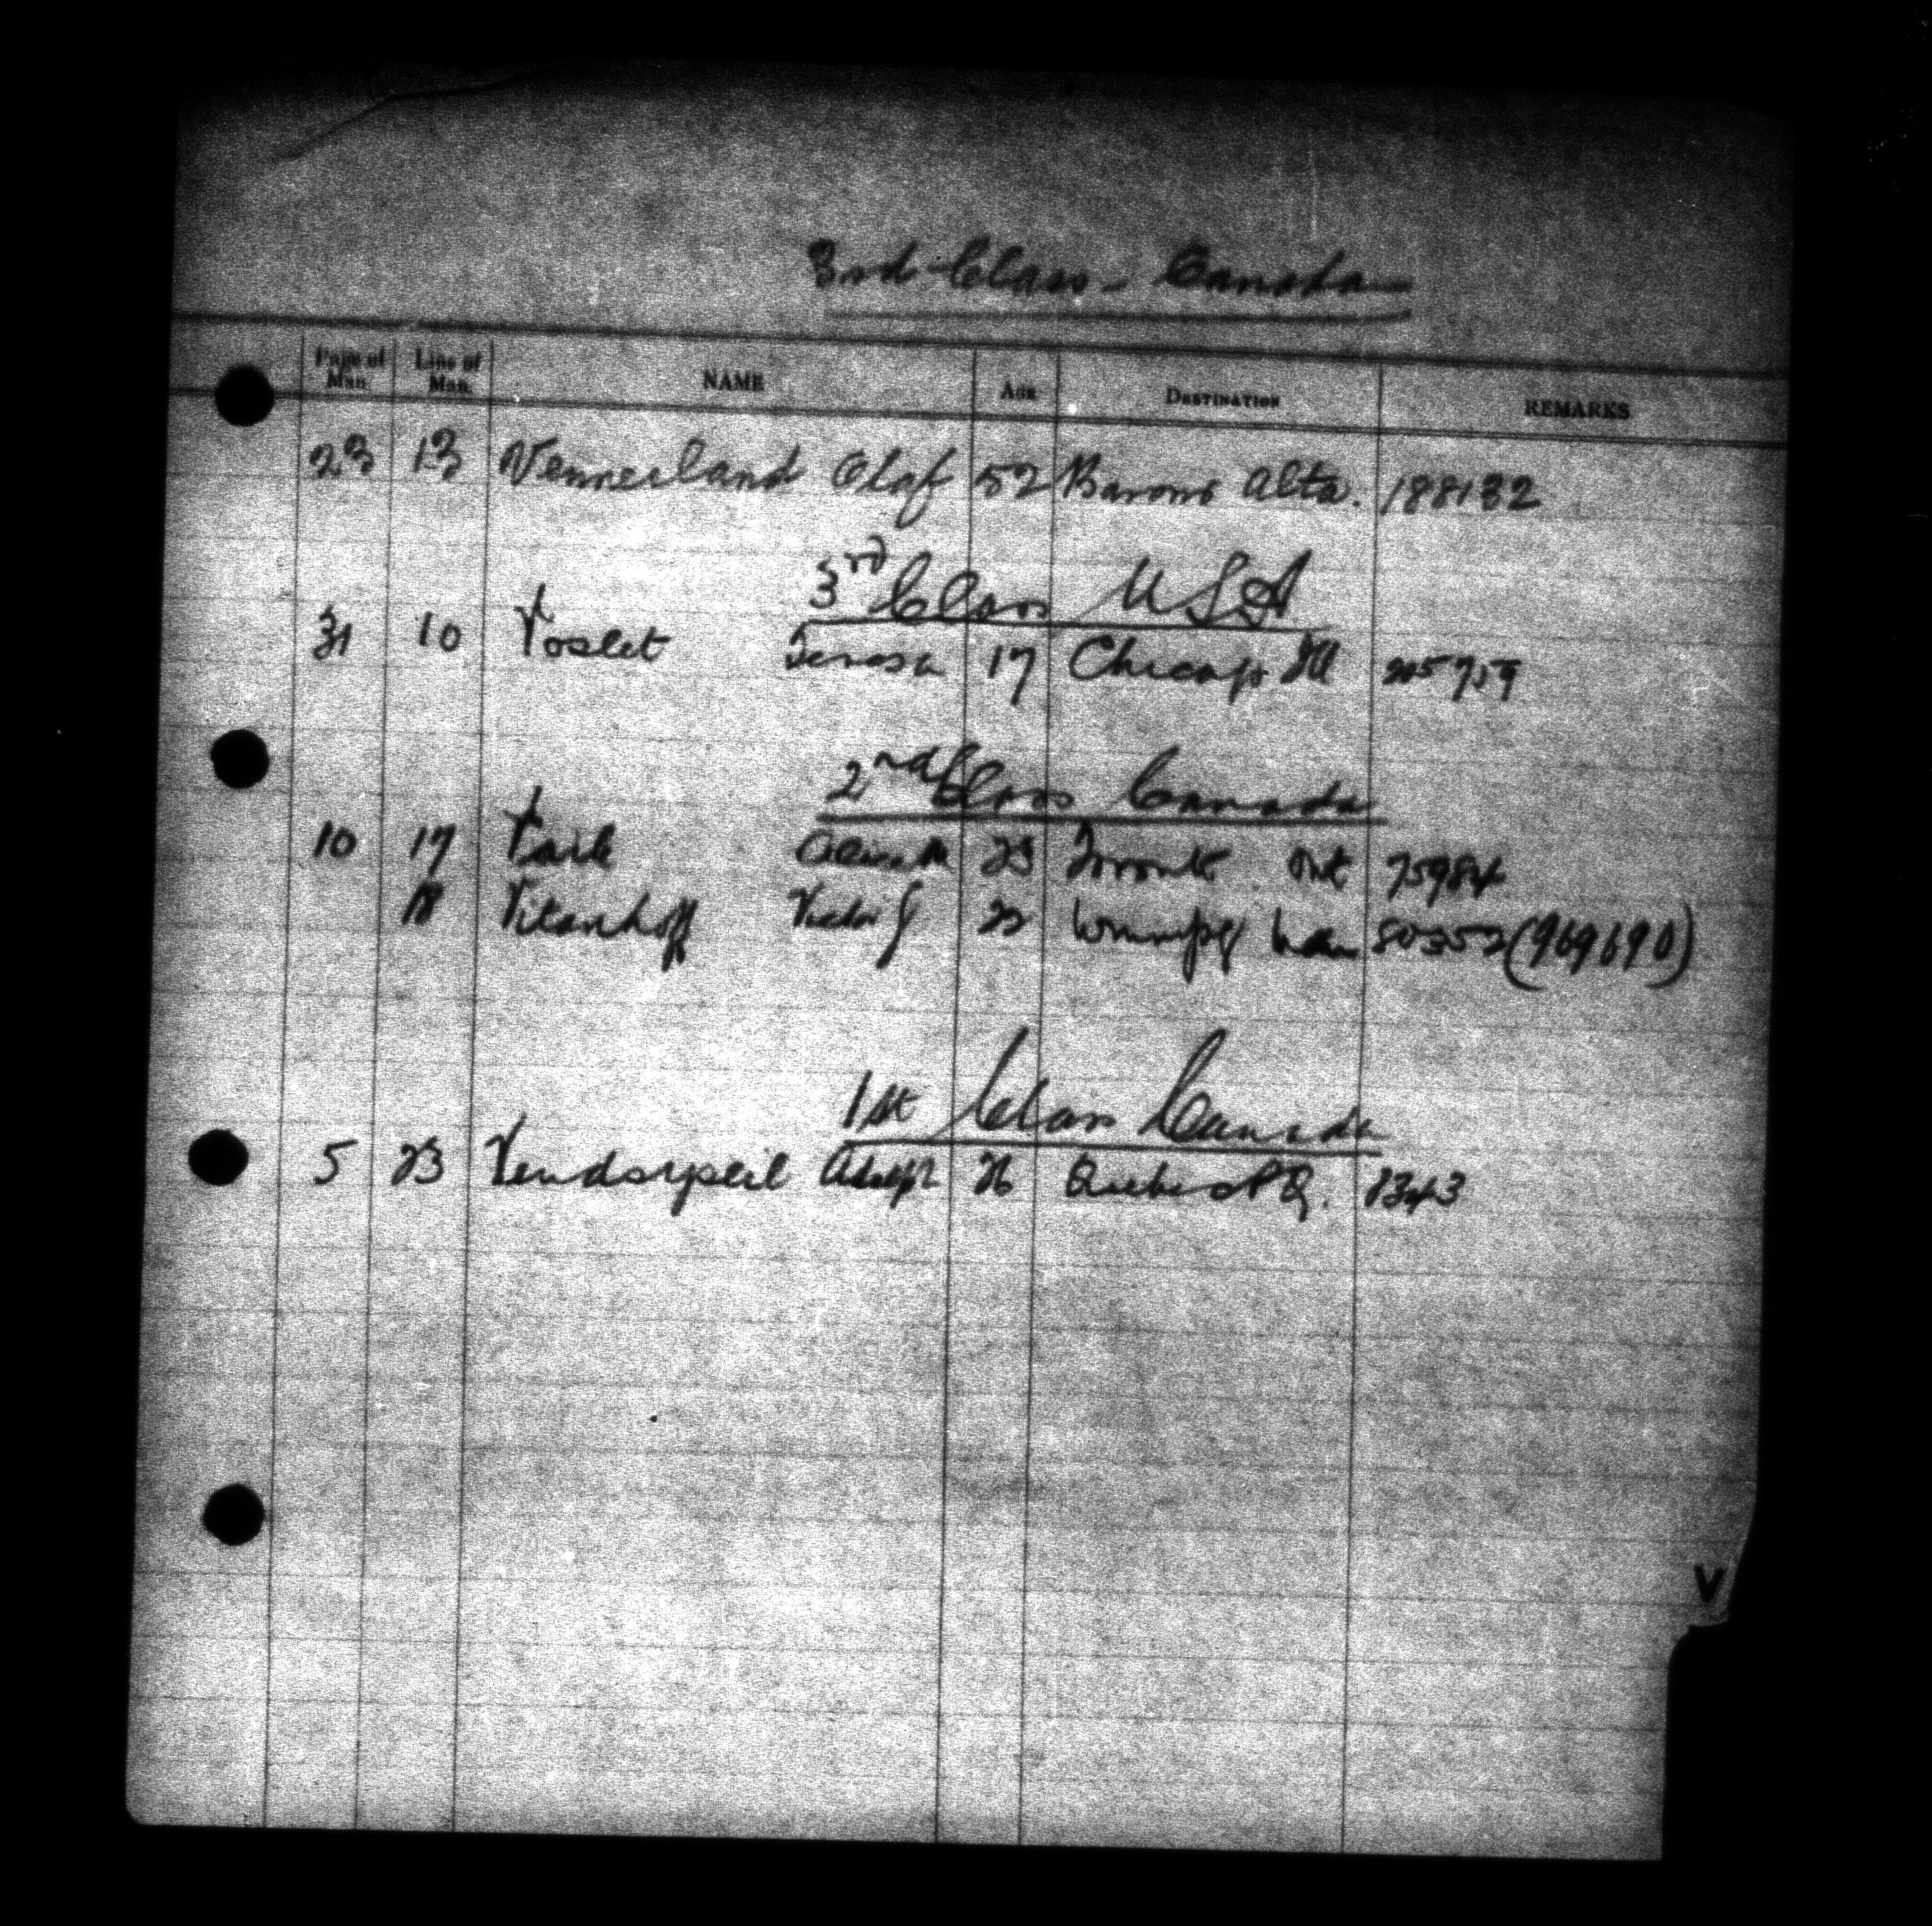 3rd Class - Canada
Page of Man. Line of Man. NAME AGE DESTINATION REMARKS
23 13 Vennerland Olaf 52 Barons Alta. 188132
3rd Class USA
31 10 Voslet Teresa 17 Chicago Ill 205759
2nd Class Canada
10 17 25 Toronto Ont 75984
18 Vitanhoff Victor J Winnipeg Man 80352 (969690)
1st Class Canada
5 23 Adolph 26 Quebec PQ. 1343
V